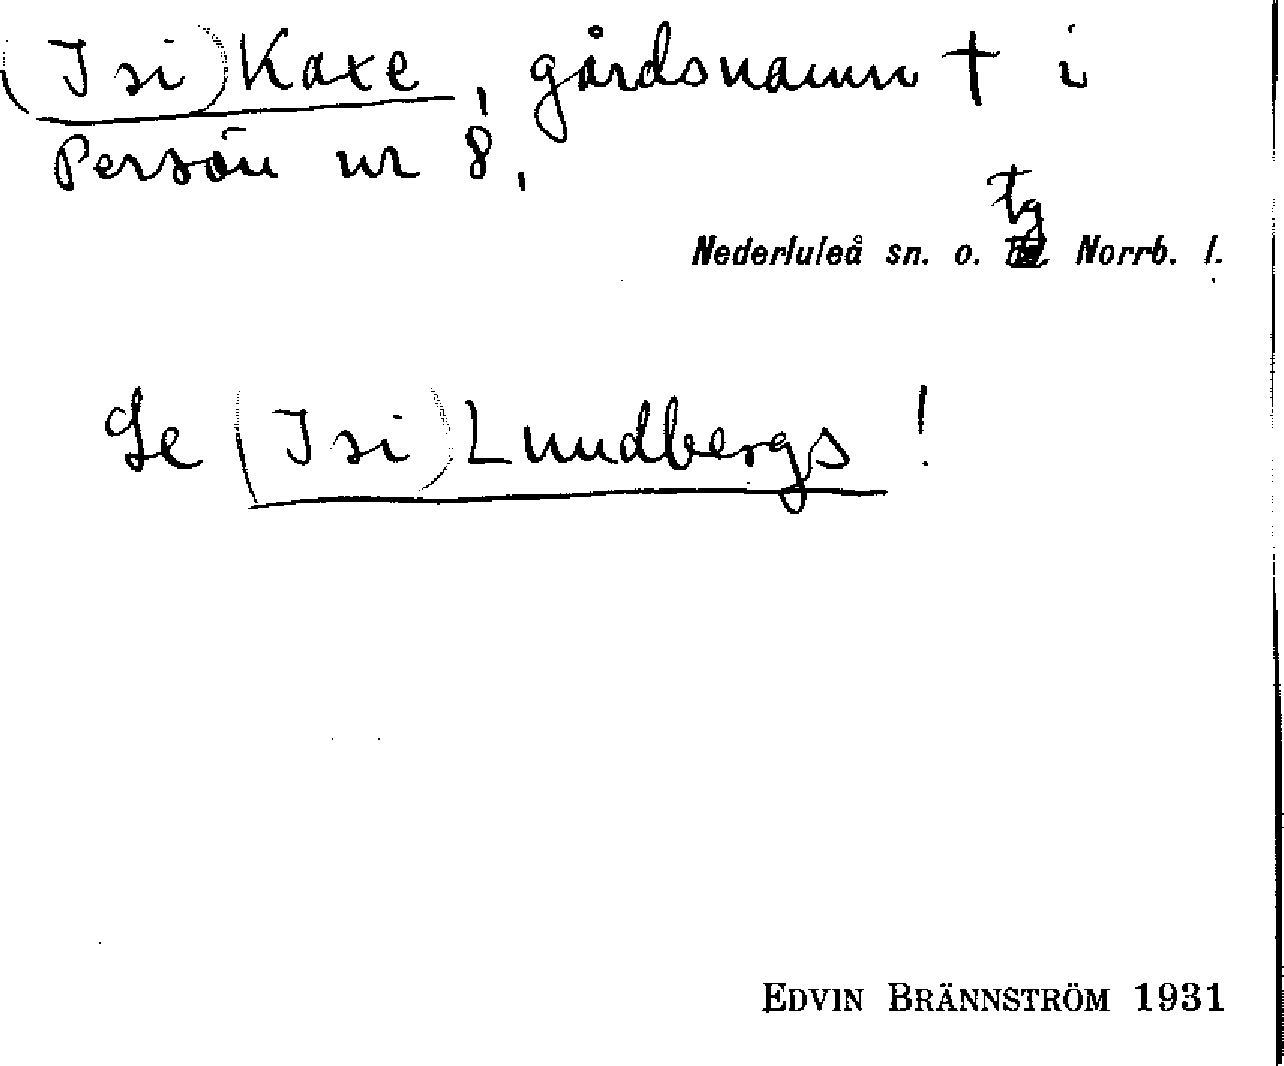 (Isi)Kaxe, gårdsnamn † i
Persön nr 8.
Nederluleå sn. o. tg Norrb. l.
Se (Isi)Lundbergs!
EDVIN BRÄNNSTRÖM 1931